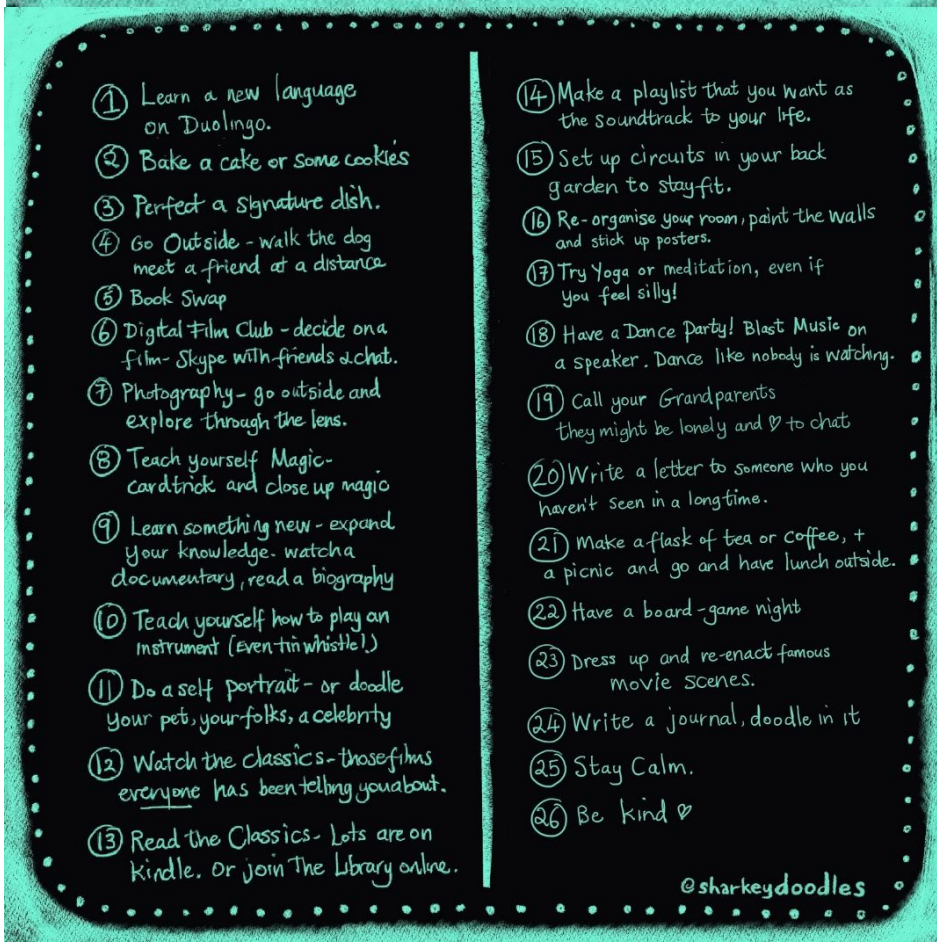 1 Learn a new language
on Duolingo.
2 Bake a cake or some cookies
3 Perfect a signature dish.
4 Go Outside - walk the dog
meet a friend at a distance
5 Book Swap
6 Digital Film Club - decide on a
film - Skype with friends & chat.
7 Photography - go outside and
explore through the lens.
8 Teach yourself Magic -
cardtrick and close up magic
9 Learn something new - expand
your knowledge. watch a
documentary, read a biography
10 Teach yourself how to play an
instrument (Even tin whistle!)
11 Do a self portrait - or doodle
your pet, your folks, a celebrity
12 Watch the classics - those films
everyone has been telling you about.
13 Read the Classics - Lots are on
kindle. Or join The Library online.
14 Make a playlist that you want as
the soundtrack to your life.
15 Set up circuits in your back
garden to stay fit.
16 Re-organise your room, paint the walls
and stick up posters.
17 Try Yoga or meditation, even if
you feel silly!
18 Have a Dance Party! Blast Music on
a speaker. Dance like nobody is watching.
19 Call your Grandparents
they might be lonely and ♡ to chat
20 Write a letter to someone who you
haven't seen in a long time.
21 Make a flask of tea or coffee, +
a picnic and go and have lunch outside.
22 Have a board-game night
23 Dress up and re-enact famous
movie scenes.
24 Write a journal, doodle in it
25 Stay Calm.
26 Be kind ♡
@sharkeydoodles